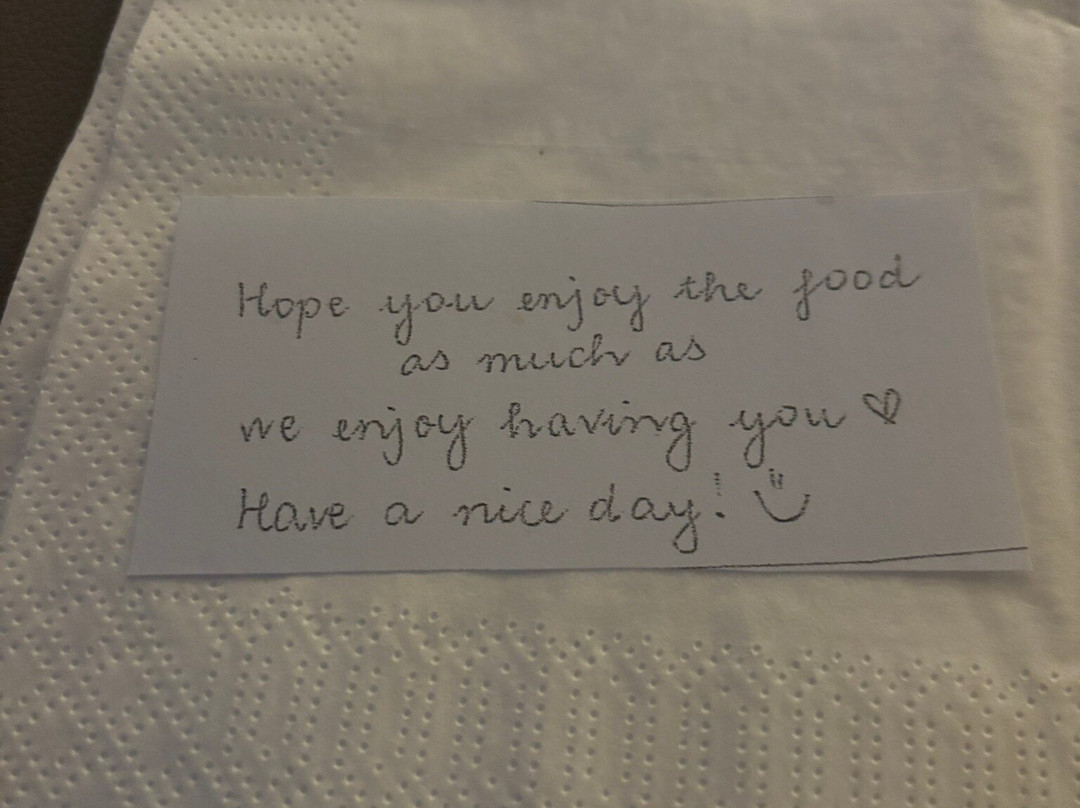 Hope you enjoy the food
as much as
we enjoy having you ♡
Have a nice day! :)